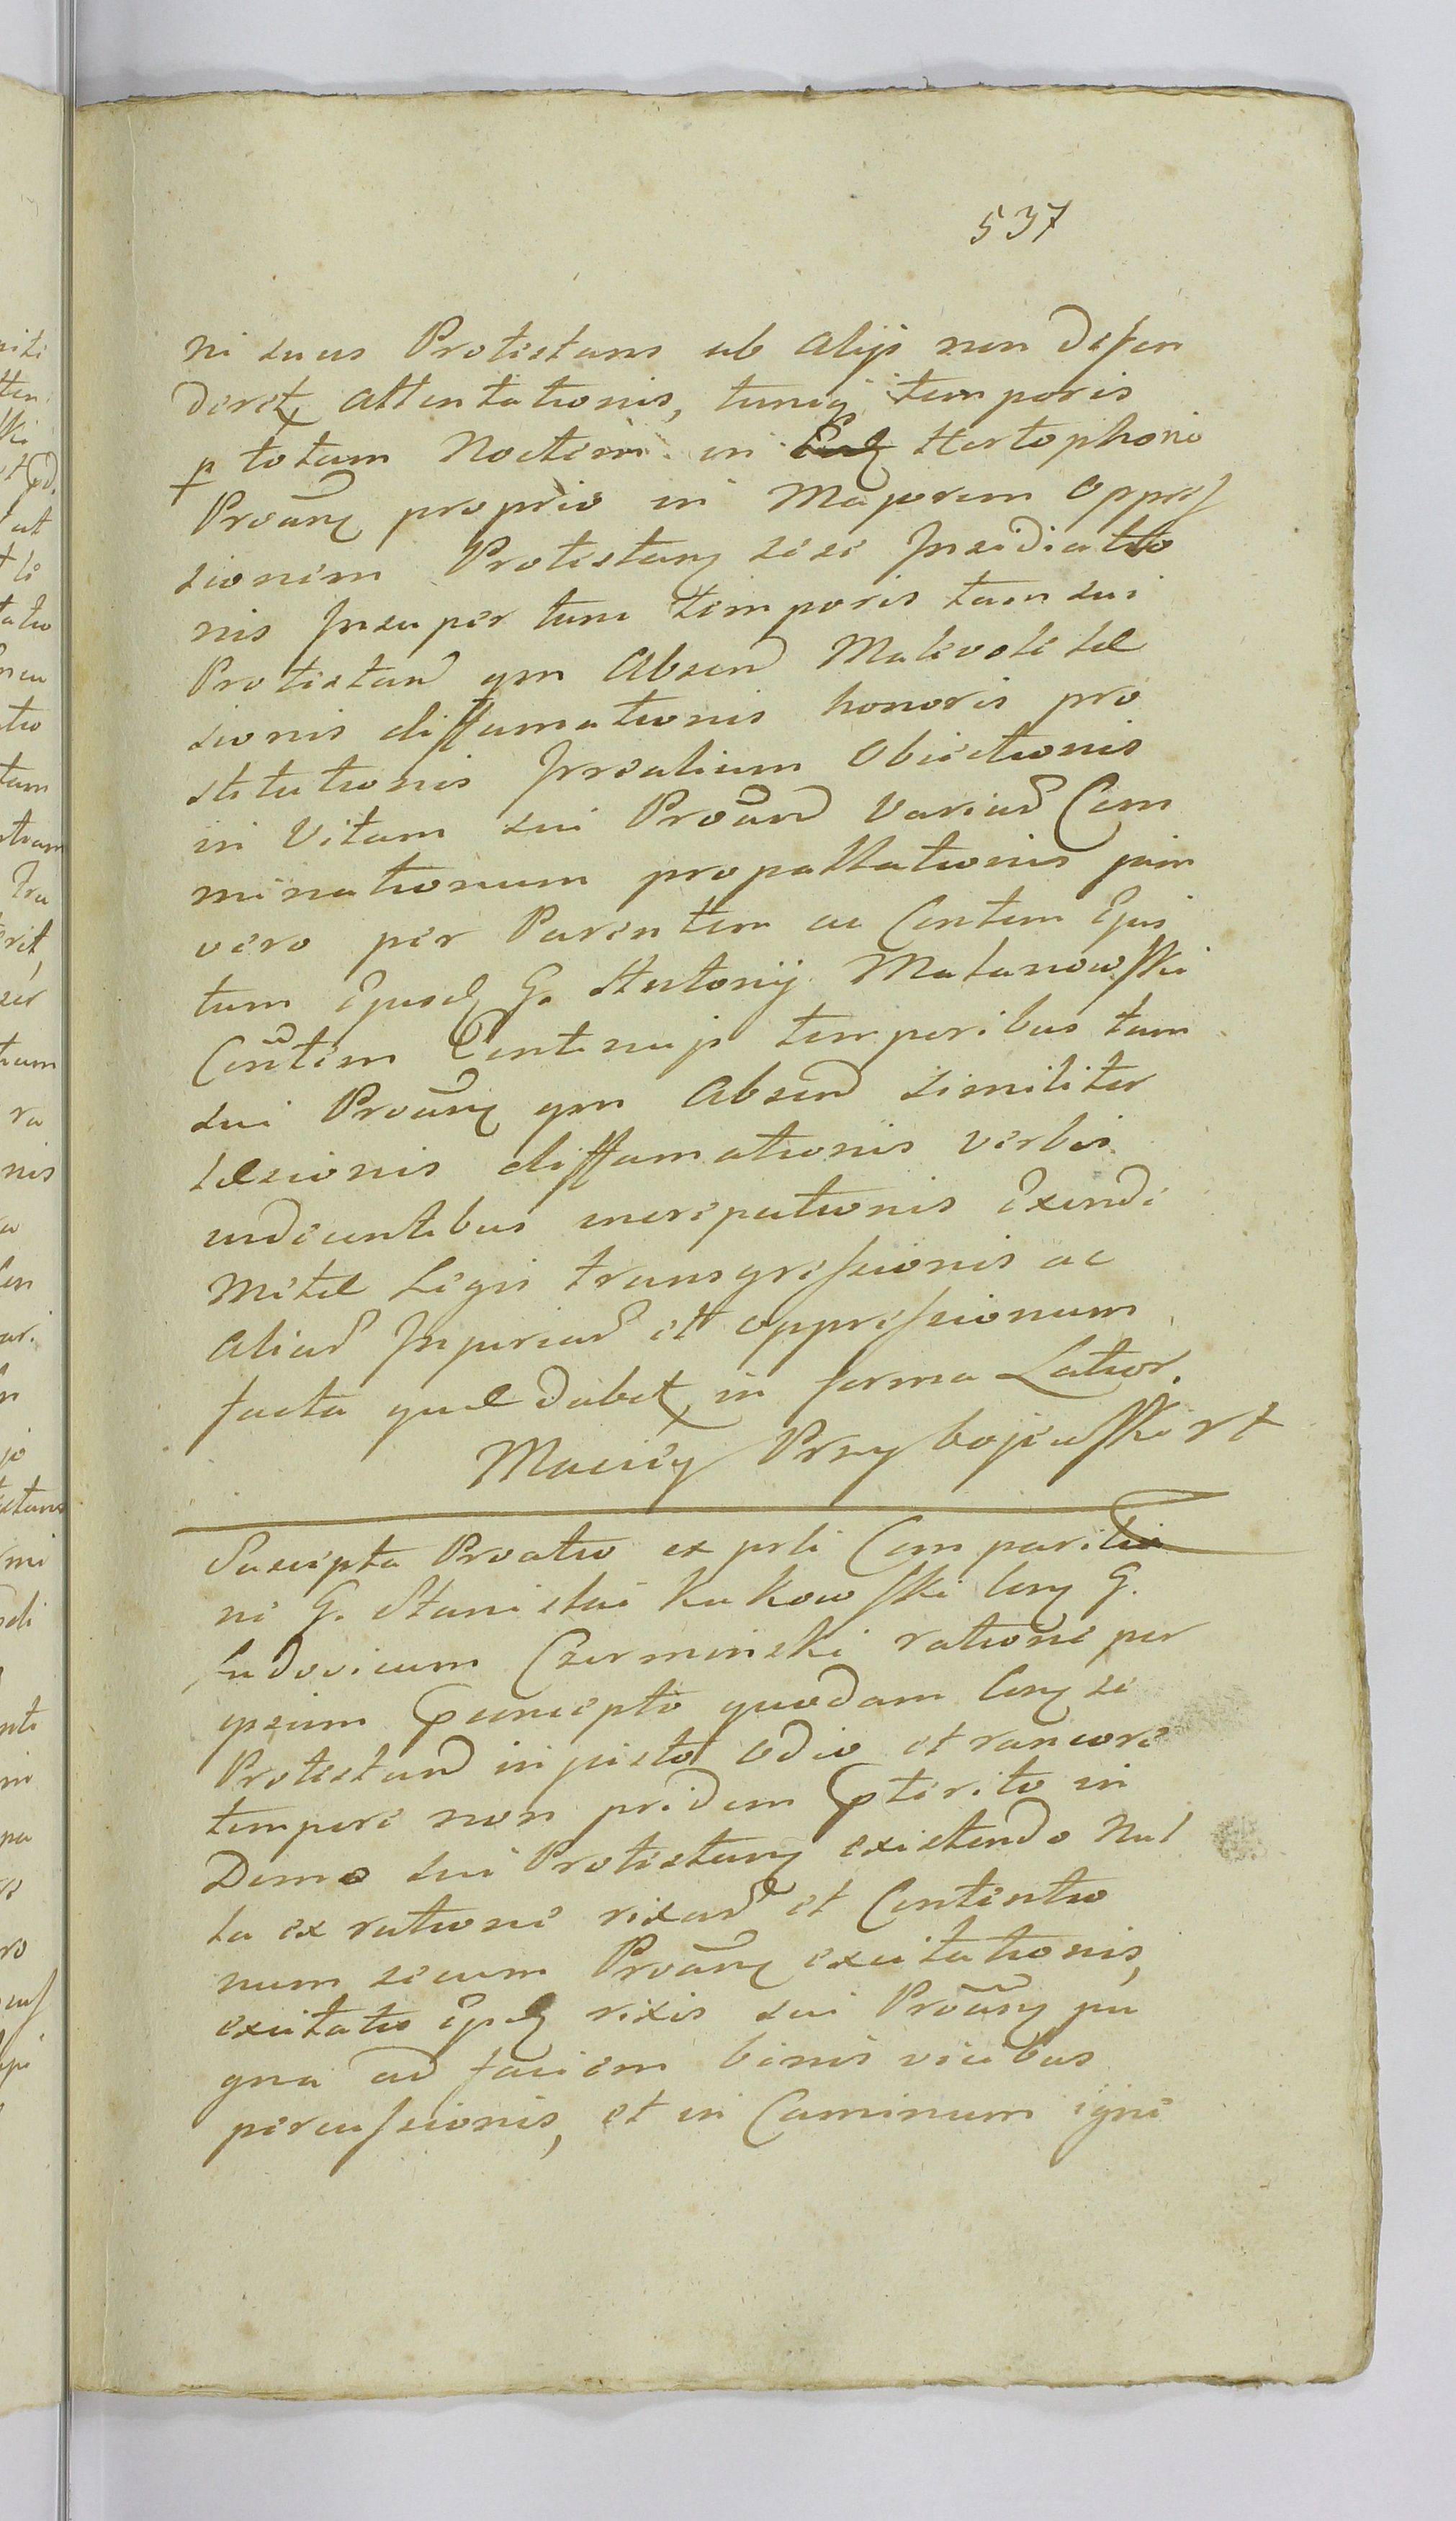 537
ni suus Protestans ab alijs non defen
deret, attentationis, tuncq temporis
p totam Noctem in Hortophono
Proañs proprio in Majorem oppres
sionem Protestang sese Insidiatio
nis Insuper tum temporis tam sui
Protestand qm Absend Malevole lae
sionis diffamationis honoris pro
stitutionis Irrealium Obiectionis
in Vitam sui Proand Variar Com
minationum propallationis jam
vero per Parentem ac Contem Ejus
tum Ejusd G. Antonij Malanowski
Contem Continujs temporibus tam
sui Proans qm Absend similiter
laesionis diffamationis verbis
indecentibus increpationis Exinde
Metae Legis transgressionis ac
aliar Injuriar et oppressionum
facta quae dabet in forma Latior.
Maciey Przybojewski rt
Suscepta Proatio ex prli Comparitio
ne G. Stanislai Kukowski cong G.
Ludovicum Czerminski ratione per
ipsum Concepto quodam cong se
Protestand injusto odio et rancore
tempore non pridem pterito in
Domo sui Protestang existendo Nul
la ex ratione rixar et Contentio
num secum Proang excitationis,
excitatis Epd rixis sui Proang pu
gna ad faciem binis vicibus
percussionis, et in Caminum igne